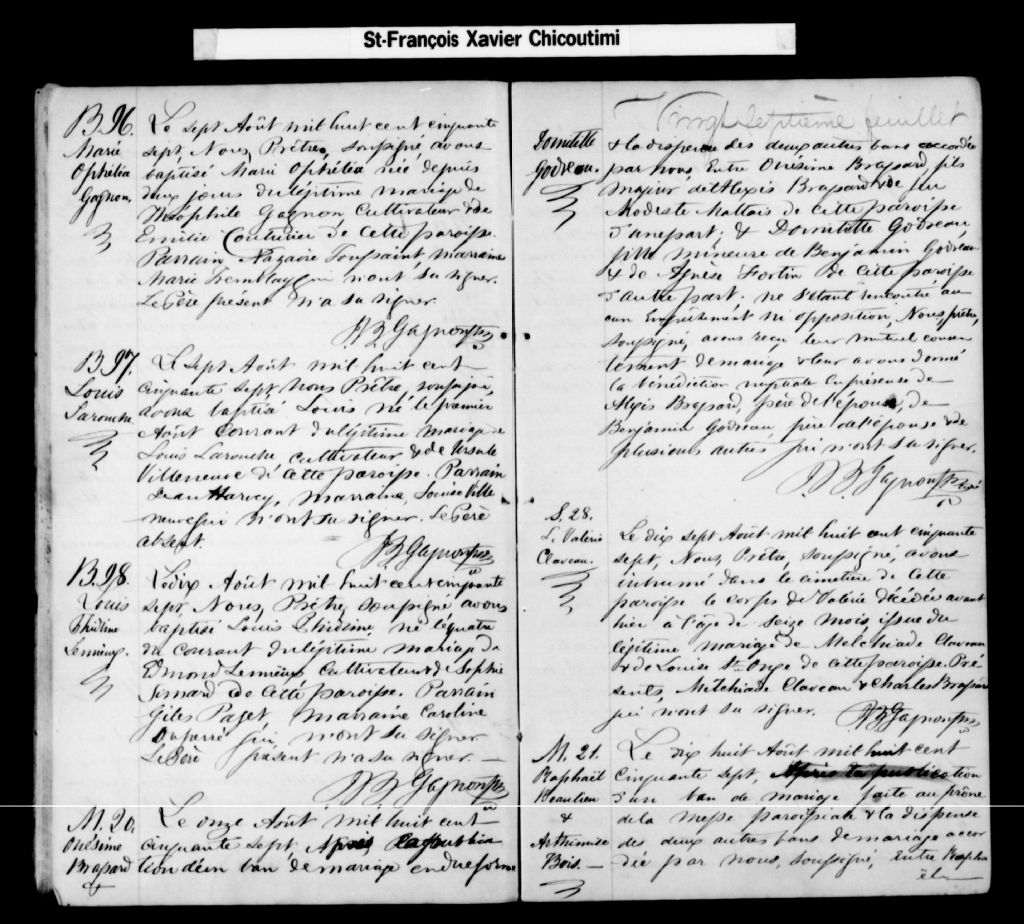 St-François Xavier Chicoutimi
B. 96.
Marie
Ophelia
Gagnon.
Le sept Août mil huit cent cinquante
sept, Nous, Prêtre, soussigné, avons
baptisé Marie Ophélia née depuis
deux jours du légitime mariage de
Théophile Gagnon Cultivateur & de
Emilie Couturier de Cette paroisse.
Parrain Nazaire Toussaint, Marraine
Marie Tremblay qui n'ont su signer.
Le Père présent n'a su signer.
J B Gagnon Ptre
B. 97.
Louis
Larouche.
Le sept Août mil huit cent
cinquante sept, Nous Prêtre, soussigné,
avons baptisé Louis né le premier
Août Courant du légitime mariage de
Louis Larouche cultivateur & de Ursule
Villeneuve de cette paroisse. Parrain
Jean Harvey, Marraine, Louise Ville
neuve qui n'ont su signer. Le Père
absent.
J B Gagnon Ptre
B. 98.
Louis
Lemieux.
Le dix Août mil huit cent cinquante
sept Nous, Prêtre, soussigné avons
baptisé Louis né le quatre
du Courant du légitime mariage de
Edmond Lemieux Cultivateur & de Sophie
Simard de Cette paroisse. Parrain
Giles Paget, Marraine Caroline
Duperré qui n'ont su signer.
Le Père présent n'a su signer. —
J B Gagnon Ptre
M. 20.
Onésime
Brassard
&
Le onze Août mil huit cent
cinquante sept, Après la publica
tion d'un ban de mariage
Vingt Septième feuillet
Domitille
Godreau.
& la dispense des deux autres bans accordée
par nous, Entre Onésime Brassard, fils
majeur de Alexis Brassard & de feu
Modeste Maltais de cette paroisse
d'une part; & Domitille Godreau
fille mineure de Benjamin Godreau
& de Agnèse Fortin de Cette paroisse
d'autre part; ne s'étant rencontré au
cun Empêchement ni opposition, Nous, prêtre,
soussigné, avons reçu leur mutuel consen
tement de mariage & leur avons donné
la bénédiction nuptiale En présence de
Alexis Brassard, père de l'époux, de
Benjamin Godreau père de l'épouse & de
plusieurs autres qui n'ont su signer.
J. B. Gagnon Ptre
S. 28.
L. Valérie
Claveau.
Le dix sept Août mil huit cent cinquante
sept, Nous, Prêtre, soussigné, avons
inhumé dans le cimetière de Cette
paroisse le corps de Valérie décédée avant
hier à l'âge de Seize mois issue du
légitime mariage de Melchiade Claveau
& de Louise St. Onge de cette paroisse. Pré
sents, Melchiade Claveau & Charles Brassard
qui n'ont su signer. J B Gagnon Ptre
M. 21.
Raphaël
Beaulieu
&
Arthimise
Bois. —
Le dix huit Août mil huit cent
Cinquante sept, Après la publication
d'un ban de mariage faite au prône
de la Messe paroissiale & la dispense
des deux autres bans de mariage accor
dée par nous, soussigné, Entre Rapha
ël